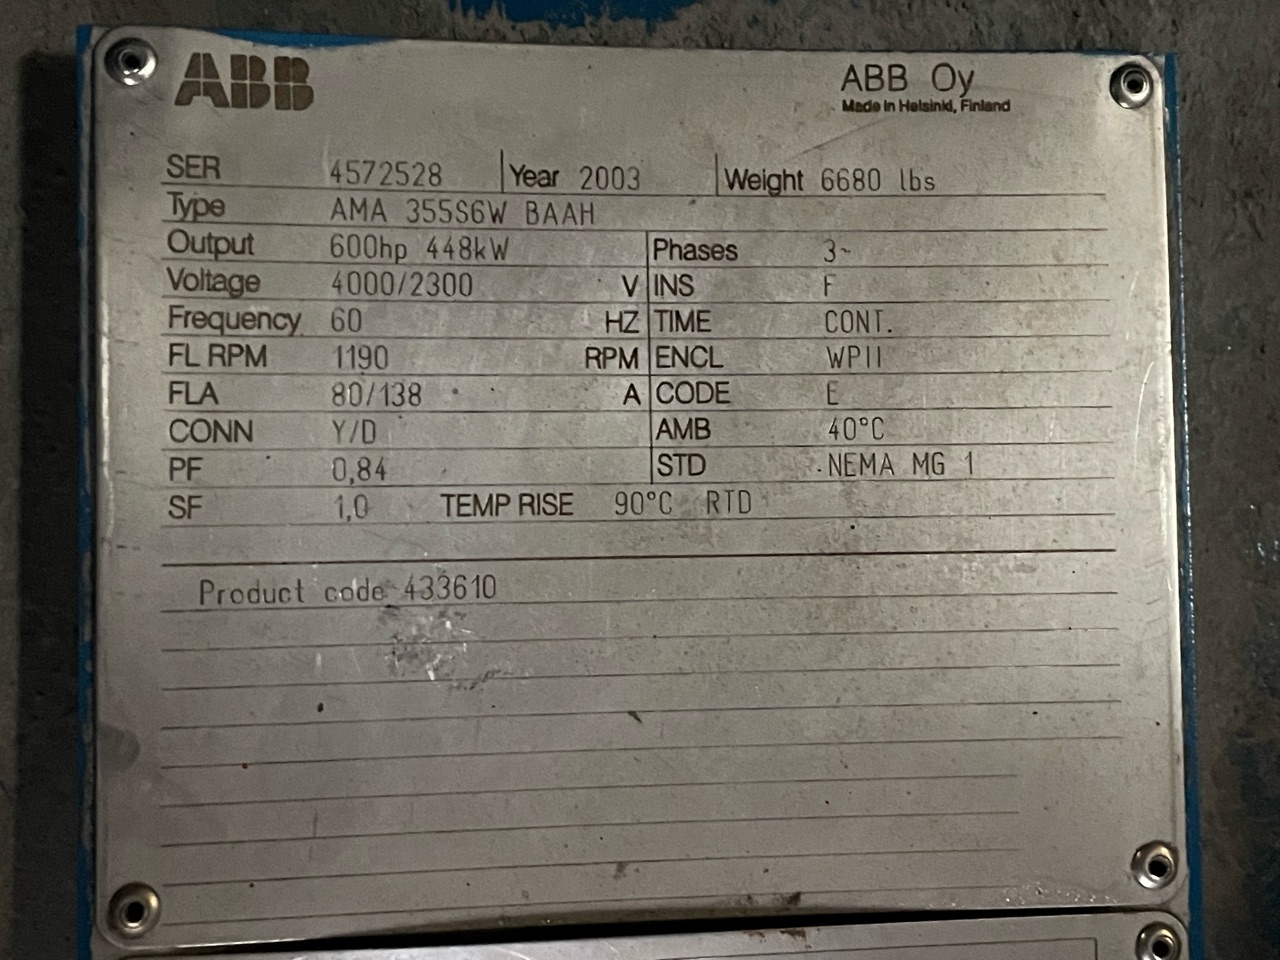 ABB
ABB Oy
Made in Helsinki, Finland
SER 4572528 Year 2003 Weight 6680 lbs
Type AMA 355S6W BAAH
Output 600hp 448kW Phases 3~
Voltage 4000/2300 V INS F
Frequency 60 HZ TIME CONT.
FL RPM 1190 RPM ENCL WPII
FLA 80/138 A CODE E
CONN Y/D AMB 40°C
PF 0,84 STD NEMA MG 1
SF 1,0 TEMP RISE 90°C RTD
Product code 433610